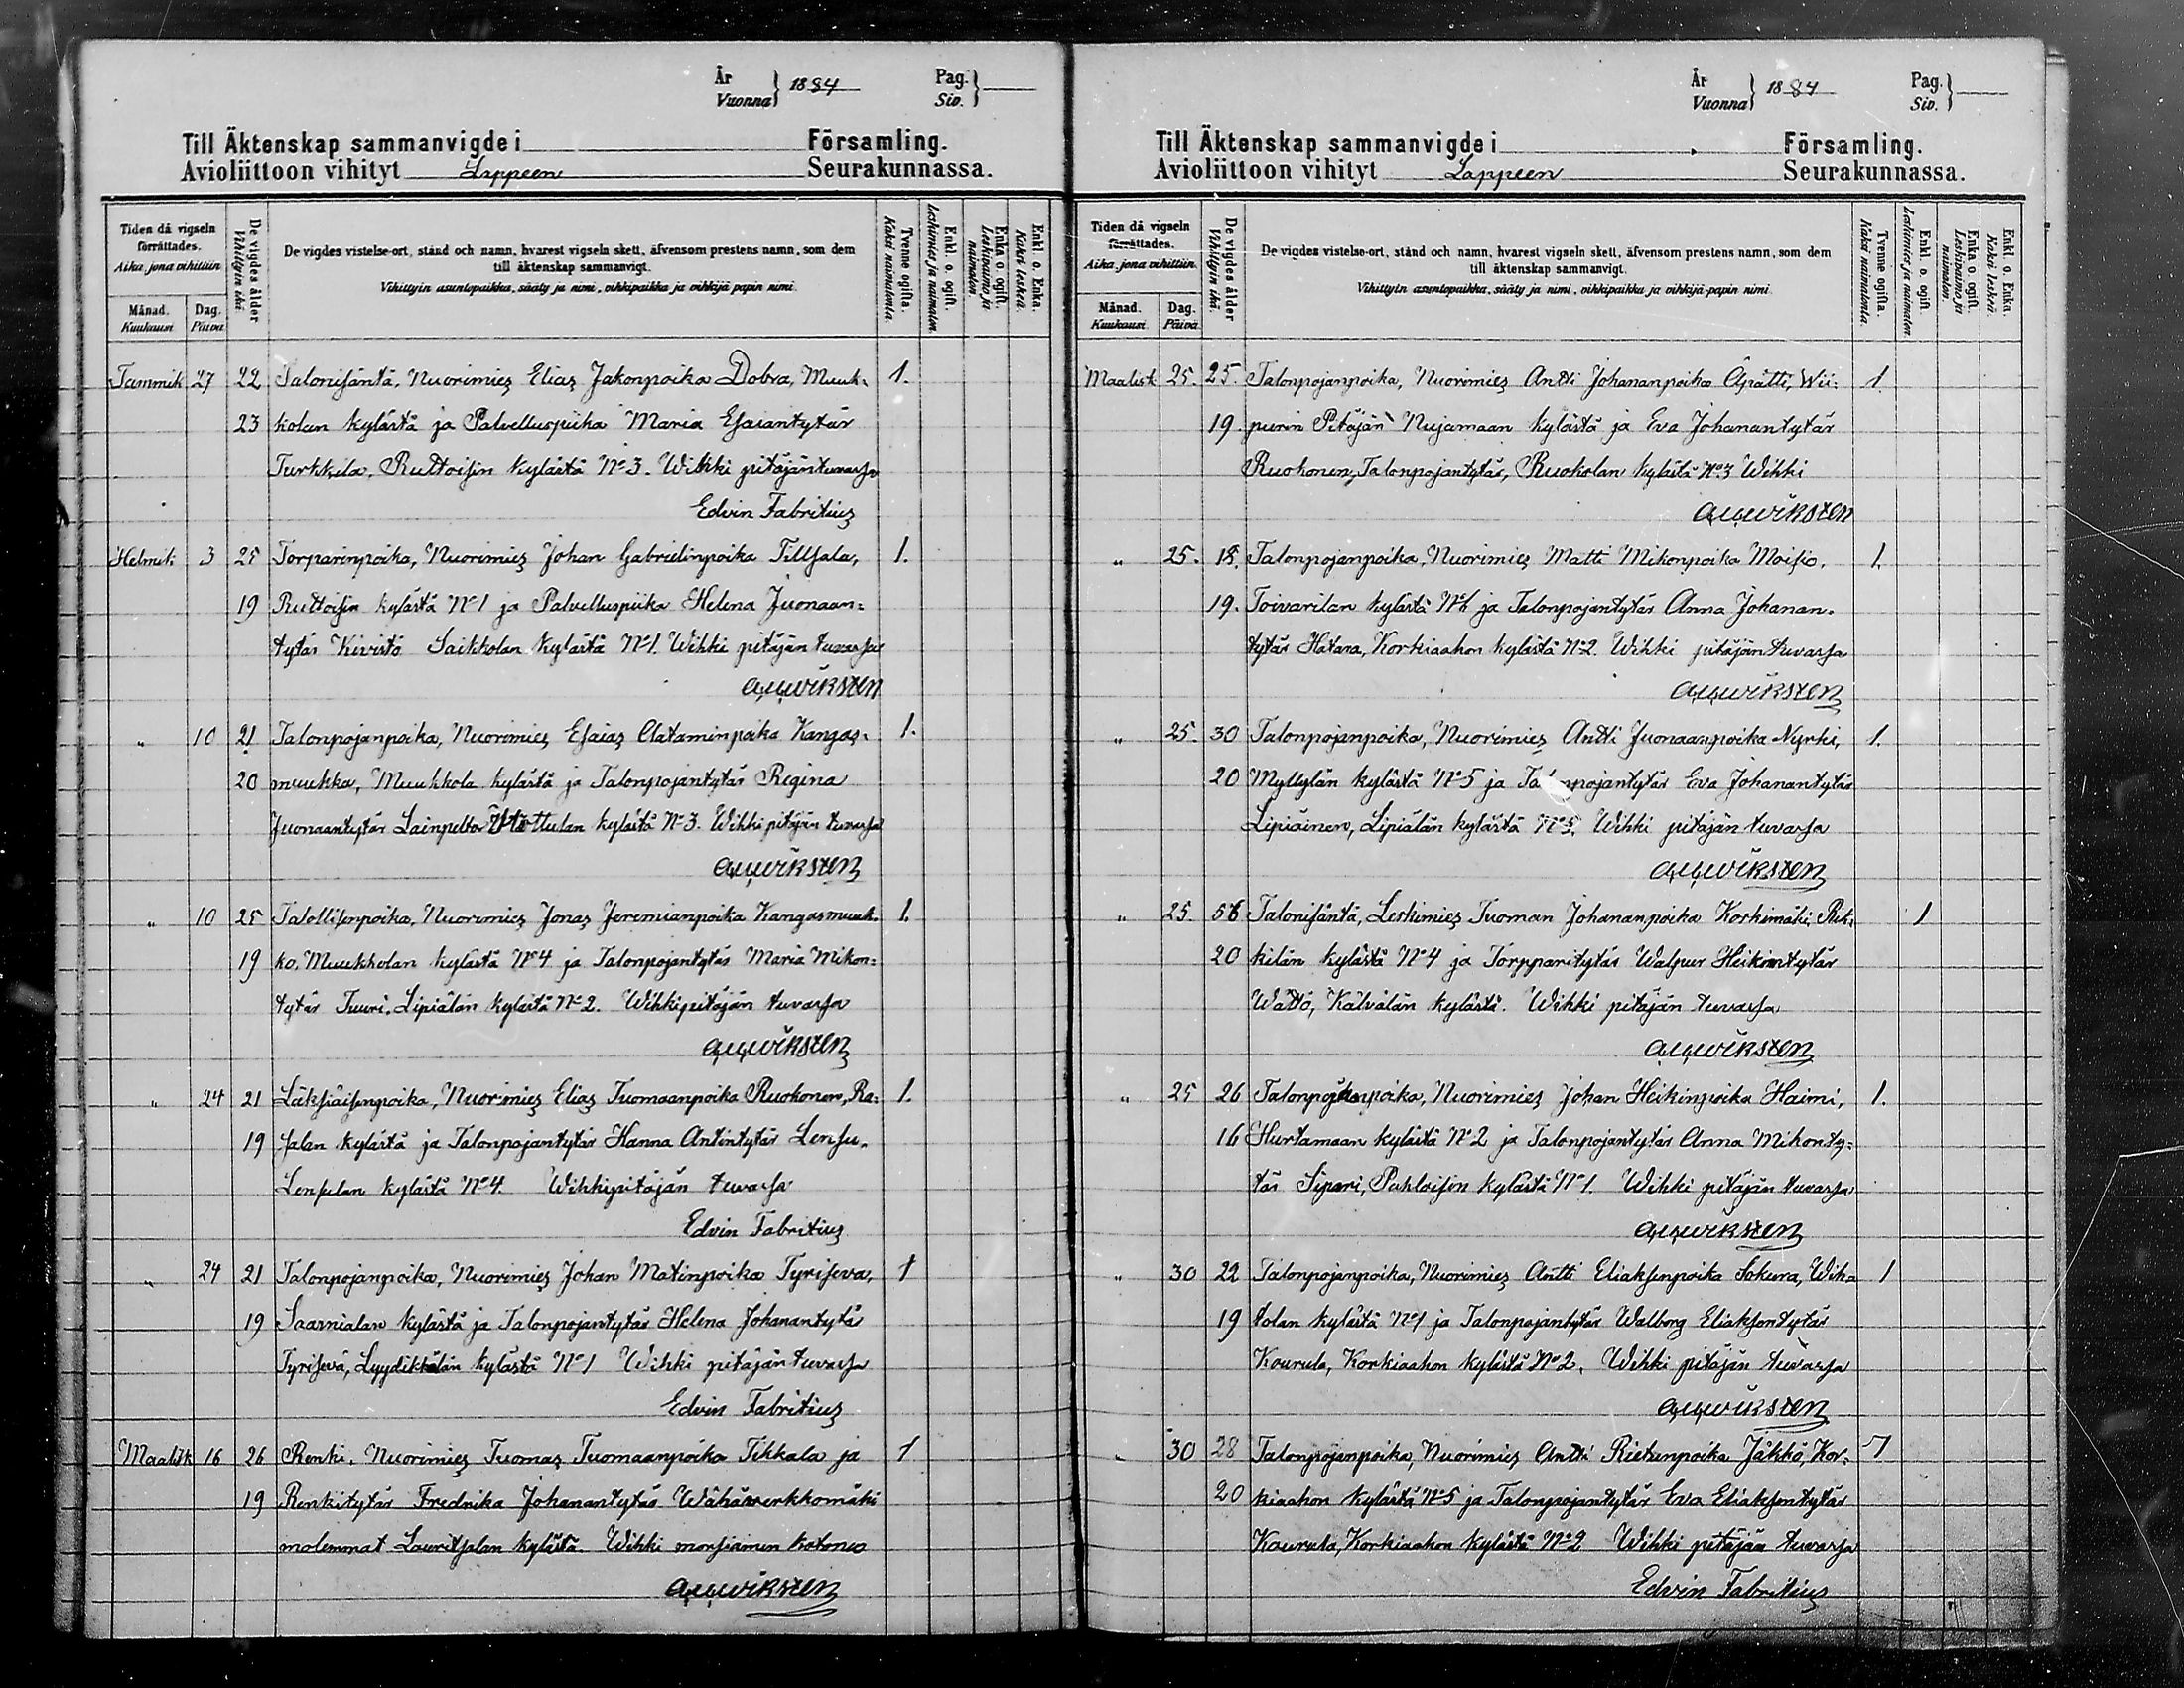 År
Vuonna } 1884
Pag.
Siv. }
Till Äktenskap sammanvigde i Församling.
Avioliittoon vihityt Lappeen Seurakunnassa.
Tiden då vigseln förrättades.
Aika, jona vihittiin
Månad.
Kuukausi
Dag.
Päivä
De vigdes ålder
Vihittyin ikä
De vigdes vistelse-ort, stånd och namn, hvarest vigseln skett, äfvensom prestens namn, som dem
till äktenskap sammanvigt.
Vihittyin asuntopaikka, sääty ja nimi, vihkipaikka ja vihkijä papin nimi
Tvenne ogifta.
Kaksi naimatonta.
Enkl. o. ogift.
Leskimies ja naimaton.
Enka o. ogift.
Leskivaimo ja naimaton.
Enkl. o. Enka.
Kaksi leskeä.
Tammik 27 22 Talonisäntä, Nuorimies Elias Jakonpoika Dobra, Muuk- 1.
23 kolan kylästä ja Palvelluspiika Maria Esaiantytär
Turkkila, Ruttoisin kylästä No 3. Wihki pitäjäntuvassa
Edvin Fabritius
Helmik 3 25 Torparinpoika, Nuorimies Johan Gabrielinpoika Tillsala, 1.
19 Ruttoisin kylästä No 1 ja Palvelluspiika Helena Juonaan=
tytär Kivistö Saikkolan kylästä No 1. Wihki pitäjän tuvassa
A.G. Wiksten
" 10 21 Talonpojanpoika, Nuorimies Esaias Aataminpoika Kangas- 1.
20 muukka, Muukkola kylästä ja Talonpojantytär Regina
Juonaantytär Lainpelto Hottulan kylästä No 3. Wihki pitäjän tuvassa
A.G. Wiksten
" 10 25 Talollisenpoika, Nuorimies Jonas Jeremianpoika Kangasmuuk- 1.
19 ko, Muukkolan kylästä No 4 ja Talonpojantytär Maria Mikon=
tytär Tuuri, Lipiälän kylästä No 2. Wihki pitäjän tuvassa
A.G. Wiksten
" 24 21 Läksiäisenpoika, Nuorimies Elias Tuomaanpoika Ruokonen, Ra- 1.
19 salan kylästä ja Talonpojantytär Hanna Antintytär Lensu,
Lensulan kylästä No 4. Wihki pitäjän tuvassa
Edvin Fabritius
" 24 21 Talonpojanpoika, Nuorimies Johan Matinpoika Tyriseva, 1
19 Saarnialan kylästä ja Talonpojantytär Helena Johanantytär
Tyrisevä, Lyydikkälän kylästä No 1 Wihki pitäjän tuvassa
Edvin Fabritius
Maalisk 16 26 Renki, Nuorimies Tuomas Tuomaanpoika Tikkala ja 1
19 Renkitytär Fredrika Johanantytär Wähäwerkkomäki
molemmat Lauritsalan kylästä. Wihki morsiamen kotona
A.G. Wiksten
År
Vuonna } 1884
Pag.
Siv. }
Till Äktenskap sammanvigde i Församling.
Avioliittoon vihityt Lappeen Seurakunnassa.
Tiden då vigseln förrättades.
Aika, jona vihittiin
Månad.
Kuukausi
Dag.
Päivä
De vigdes ålder
Vihittyin ikä
De vigdes vistelse-ort, stånd och namn, hvarest vigseln skett, äfvensom prestens namn, som dem
till äktenskap sammanvigt.
Vihittyin asuntopaikka, sääty ja nimi, vihkipaikka ja vihkijä papin nimi
Tvenne ogifta.
Kaksi naimatonta.
Enkl. o. ogift.
Leskimies ja naimaton.
Enka o. ogift.
Leskivaimo ja naimaton.
Enkl. o. Enka.
Kaksi leskeä.
Maalisk 25. 25. Talonpojanpoika, Nuorimies Antti Johananpoika Äpätti, Wii- 1.
19. purin Pitäjän Nujamaan kylästä ja Eva Johanantytär
Ruokonen, Talonpojantytär, Ruokolan kylästä No 3 Wihki
A.G. Wiksten
" 25. 18. Talonpojanpoika, Nuorimies Matti Mikonpoika Moisio, 1.
19. Toivarilan kylästä No 4 ja Talonpojantytär Anna Johanan-
tytär Hatara, Korkiaahon kylästä No 2. Wihki pitäjän tuvassa
A.G. Wiksten
" 25. 30 Talonpojanpoika, Nuorimies Antti Juonaanpoika Nyrki, 1.
20 Myllylän kylästä No 5 ja Talonpojantytär Eva Johanantytär
Lipiäinen, Lipiälän kylästä No 5. Wihki pitäjän tuvassa
A.G. Wiksten
" 25. 56 Talonisäntä, Leskimies Tuoman Johananpoika Korkimäki, Rik- 1
20 kilän kylästä No 4 ja Torpparitytär Walpur Heikintytär
Wättö, Kälvälän kylästä. Wihki pitäjän tuvassa
A.G. Wiksten
" 25 26 Talonpojanpoika, Nuorimies Johan Heikinpoika Haimi, 1.
16 Hurtamaan kylästä No 2 ja Talonpojantytär Anna Mikonty=
tär Sipari, Pahloisin kylästä No 1. Wihki pitäjän tuvassa
A.G. Wiksten
" 30 22 Talonpojanpoika, Nuorimies Antti Eliaksenpoika Sokura, Wih= 1
19 tolan kylästä No 1 ja Talonpojantytär Walborg Eliaksentytär
Kourula, Korkiaahon kylästä No 2. Wihki pitäjän tuvassa
A.G. Wiksten
" 30 28 Talonpojanpoika, Nuorimies Antti Rietunpoika Jäkkö, Kor- 1
20 kiaahon kylästä No 5 ja Talonpojantytär Eva Eliaksentytär
Kourula, Korkiaahon kylästä No 2 Wihki pitäjän tuvassa
Edvin Fabritius